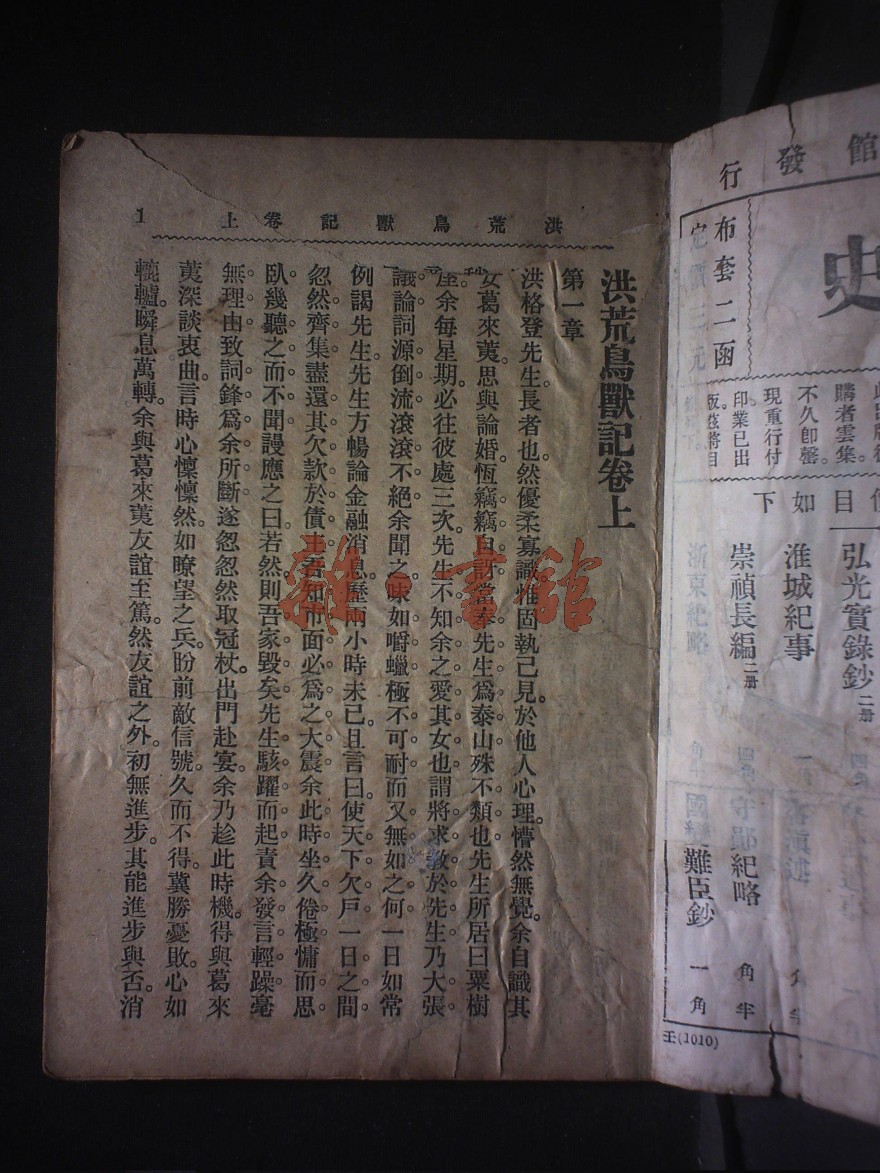 洪荒鳥獸記卷上
1
洪荒鳥獸記卷上
第一章
洪格登先生長者也。然優柔寡識。惟固執己見。於他人心理。懵然無覺。余自識其
女葛來荑。思與論婚。恆竊竊自訝。當奉先生爲泰山。殊不類也。先生所居曰栗樹
余每星期。必往彼處三次。先生不知余之愛其女也。謂將求教於先生。乃大張
議論。詞源倒流。滾滾不絕。余聞之。味如嚼蠟。極不可耐。而又無如之何。一日如常
例謁先生。先生方暢論金融消息。歷兩小時未已。且言曰。使天下欠戶。一日之間
忽然齊集。盡還其欠款於債主。吾知市面必爲之大震。余此時坐久倦極。慵而思
臥。幾聽之而不聞。謾應之曰。若然則吾家毀矣。先生駭躍而起。責余發言輕躁。毫
無理由。致詞鋒爲余所斷。遂忽忽然取冠杖。出門赴宴。余乃趁此時機。得與葛來
荑深談衷曲。言時心懍懍然。如瞭望之兵。盼前敵信號。久而不得。冀勝憂敗。心如
轆轤。瞬息萬轉。余與葛來荑友誼至篤。然友誼之外。初無進步。其能進步與否。消
雜·書館
館發行
史
布套二函
定價三元
購者雲集。
不久卽罄。
現重行付
印業已出
版。茲將目
目如下
弘光實錄鈔 二册
淮城紀事
崇禎長編 二册
浙東紀略
紀略
角半
難臣鈔 一角
王(1010)